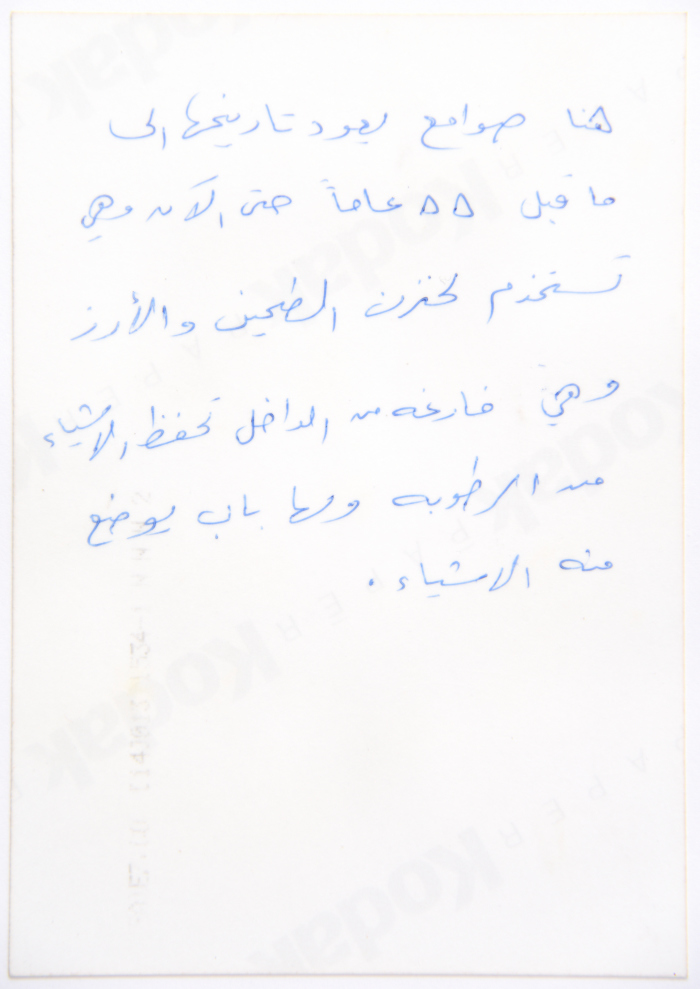 هنا صوامع يعود تاريخها الى
ما قبل ٥٥ عاماً حتى الآن وهي
تستخدم لخزن الطحين والأرز
وهي فارغه من الداخل تحفظ الاشياء
من الرطوبه ولها باب يوضع
منه الاشياء .
Kodak
Kodak
Kodak
Kodak
Kodak